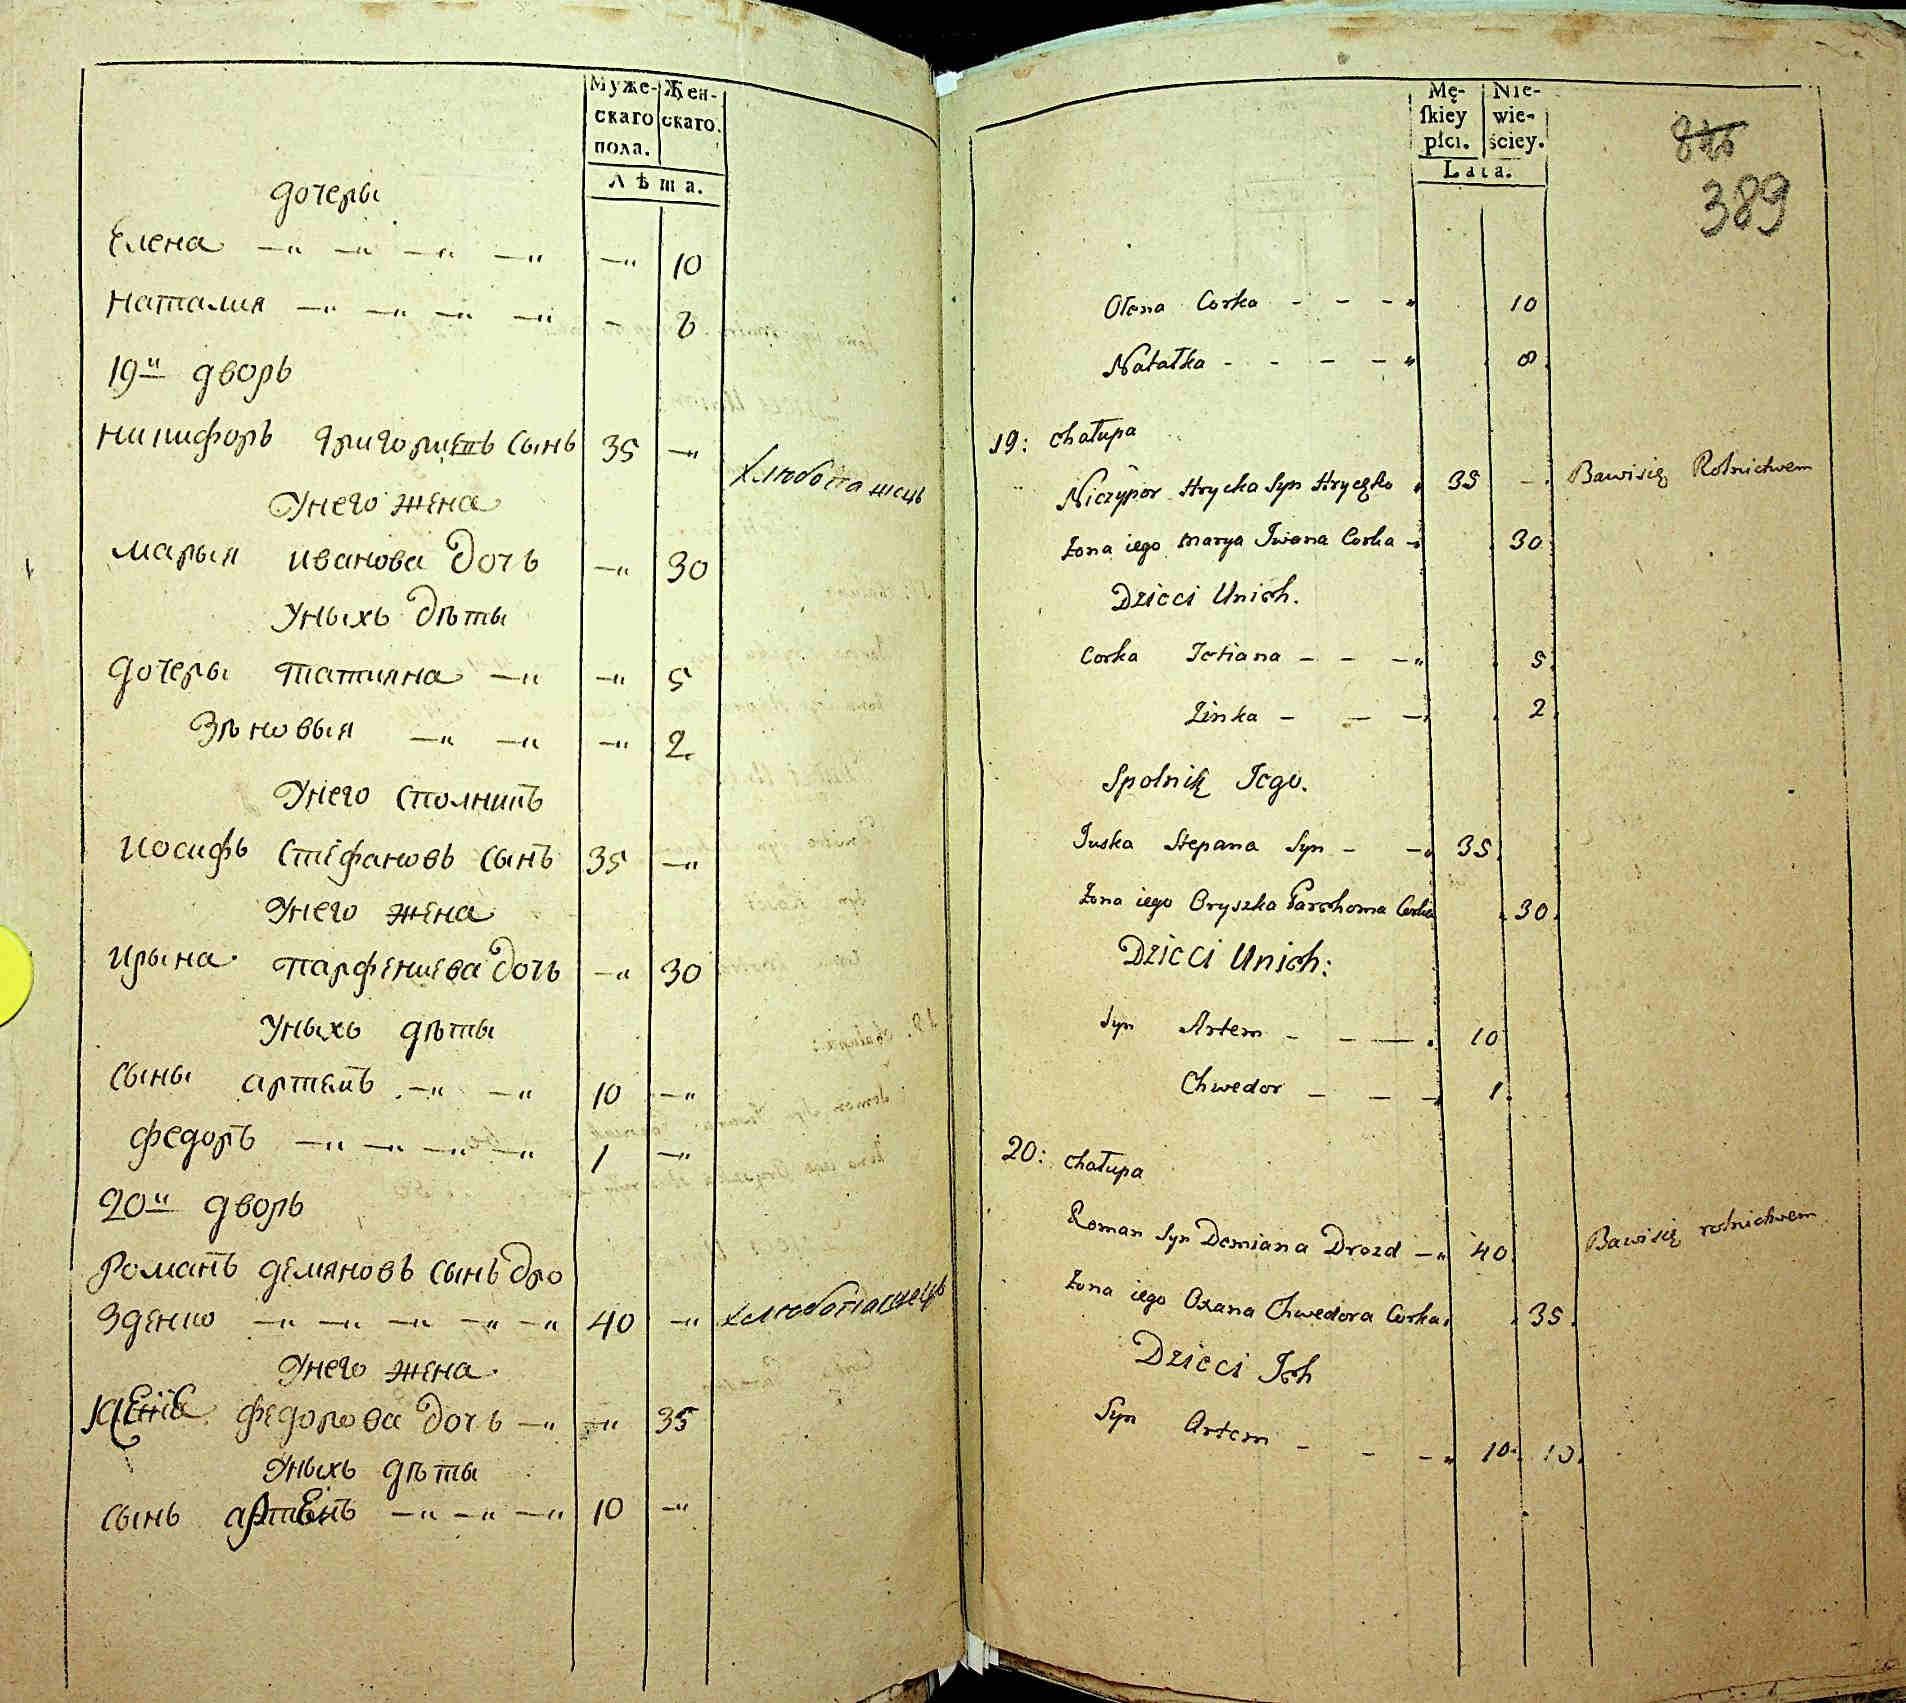 Муже- Жен-
скаго скаго.
пола.
Лѣта.
дочеры
Елена —„ —„ —„ —„ —„ 10
Наталия —„ —„ —„ —„ - 8
19й дворъ
Никифоръ Григориевъ сынъ 35 —„ хлѣбопашецъ
Унего жена
Марыя Иванова дочь —„ 30
Уныхъ дѣты
дочеры Татияна —„ —„ 5
Зѣновыя —„ —„ —„ 2.
Унего сполникъ
Иосифъ Стефановъ сынъ 35 —„
Унего жена
Ирына Парфениева дочь —„ 30
Уныхъ дѣты
сыны Артемъ —„ —„ 10 —„
Федоръ —„ —„ —„ —„ 1 —„
20й дворъ
Романъ Демяновъ сынъ Дро
зденко —„ —„ —„ —„ —„ 40 —„ хлѣбопашецъ
Унего жена
Федорова дочь —„ —„ 35
Уныхъ дѣты
сынъ Артемъ —„ —„ —„ 10 —„
Mę- Nie-
ſkiey wie-
płci. ściey.
Lata.
389
Ołena Corka - - - „ 10
Natałka - - - - „ 8.
19: chałupa
Niczypor Hrycka Syn Hryczko 35 - Bawisię Rolnictwem
Żona iego Marya Iwana Corka - 30
Dzieci Unich.
Corka Tetiana - - -„ 5.
Zinka - - - 2.
Spolnik Jego.
Juska Stepana Syn - -„ 35.
Żona iego Oryszka Parchoma Corka 30.
Dzieci Unich:
Syn Artem - - — . 10
Chwedor - - - 1.
20: chałupa
Roman Syn Demiana Drozd -„ 40. Bawisię rolnictwem
Żona iego Oxana Chwedora Corka. 35.
Dzieci Ich
Syn Artem - - -„ 10. 10.